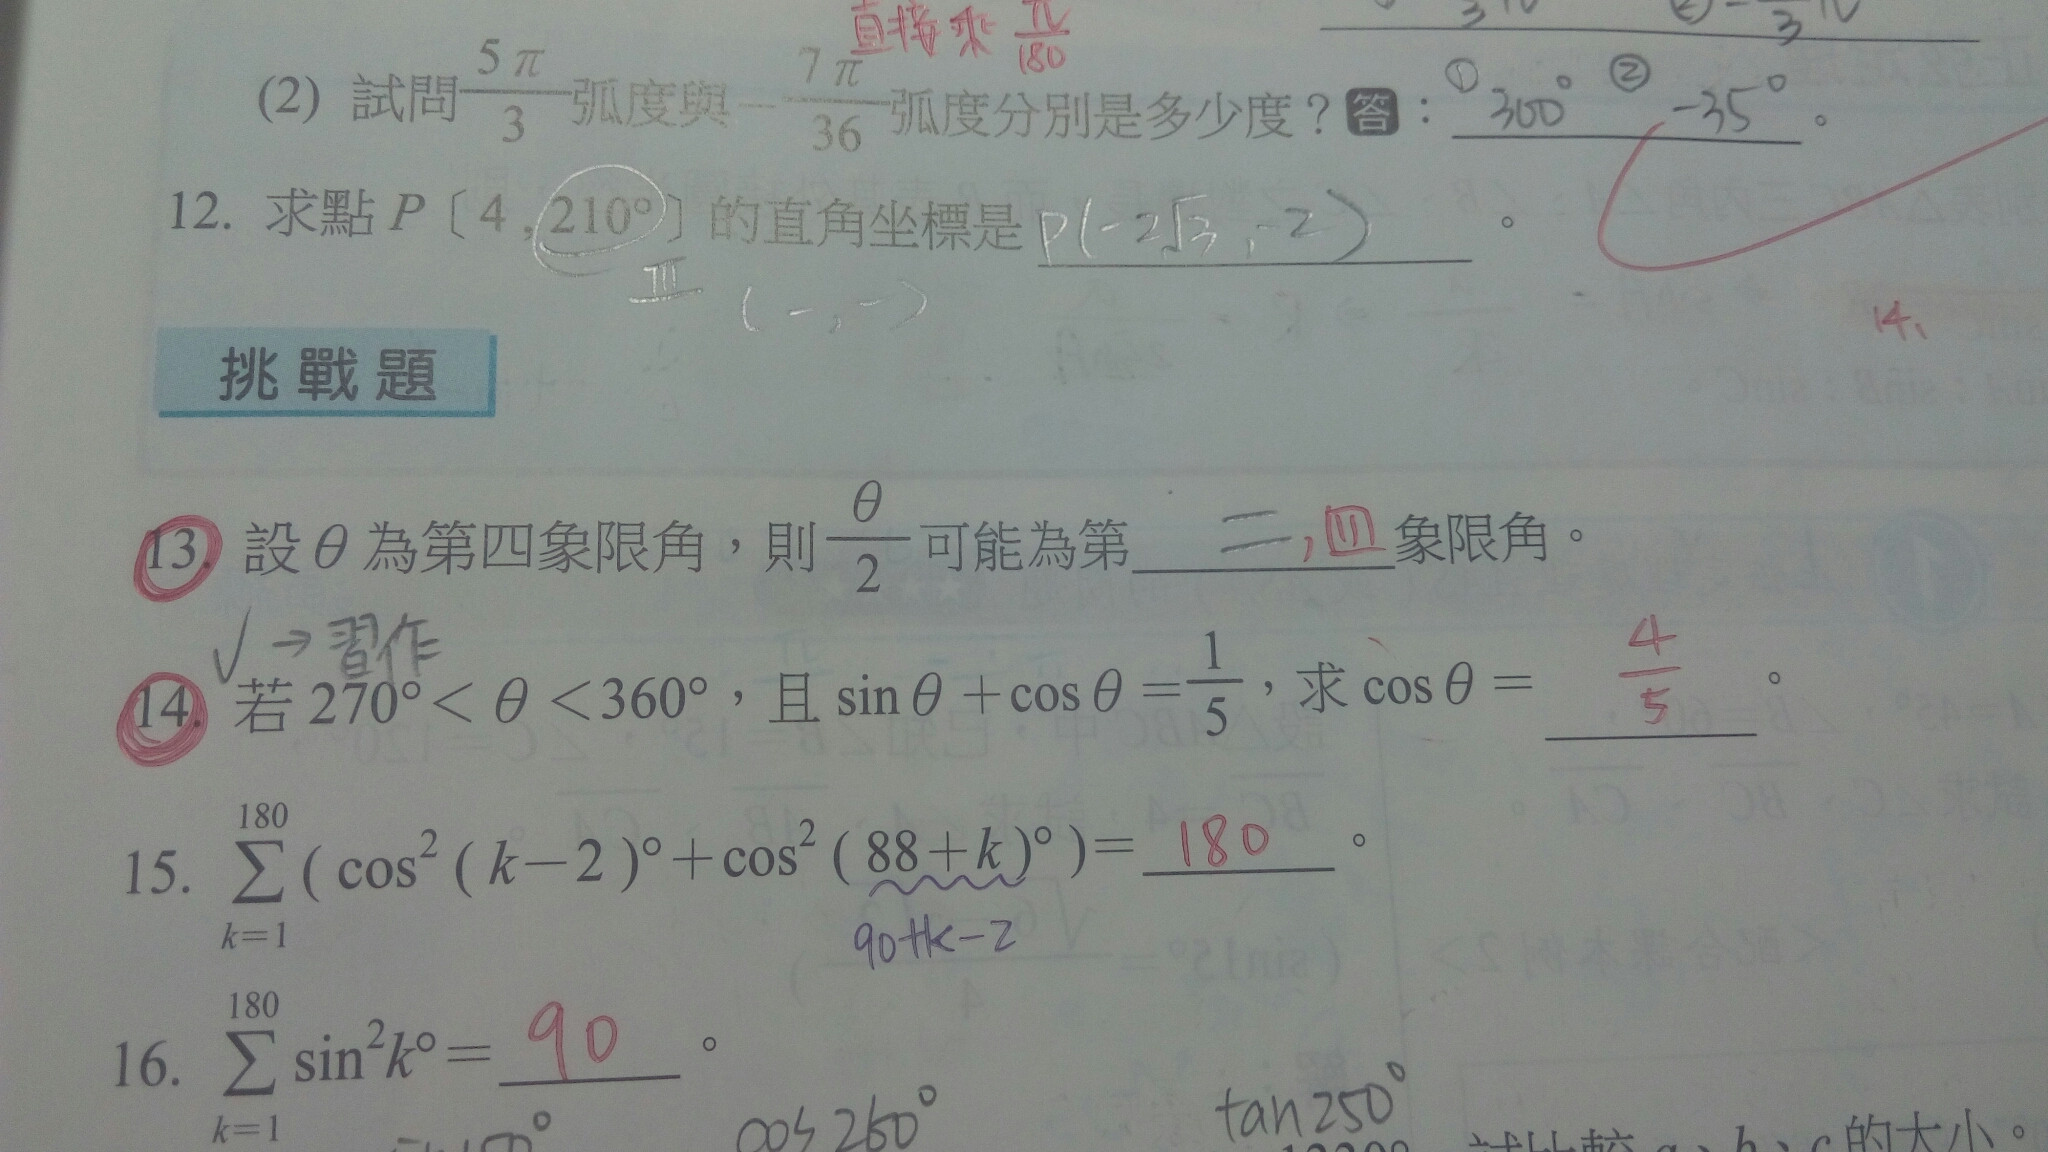 直接乘 π/180
(2) 試問 5π/3 弧度與 −7π/36 弧度分別是多少度？答：① 300° ② −35° 。
12. 求點 P〔4 , 210°〕的直角坐標是 P(−2√3 , −2) 。
III (−,−)
14.
挑戰題
13. 設 θ 為第四象限角，則 θ/2 可能為第 二,四 象限角。
√→習作
14. 若 270°< θ <360°，且 sinθ+cosθ=1/5，求 cosθ= 4/5 。
15. ∑_{k=1}^{180} ( cos²( k−2 )°+cos²( 88+k )° )= 180 。
90+k−2
16. ∑_{k=1}^{180} sin²k°= 90 。
cos260° tan250°
試比較 a、b、c 的大小。